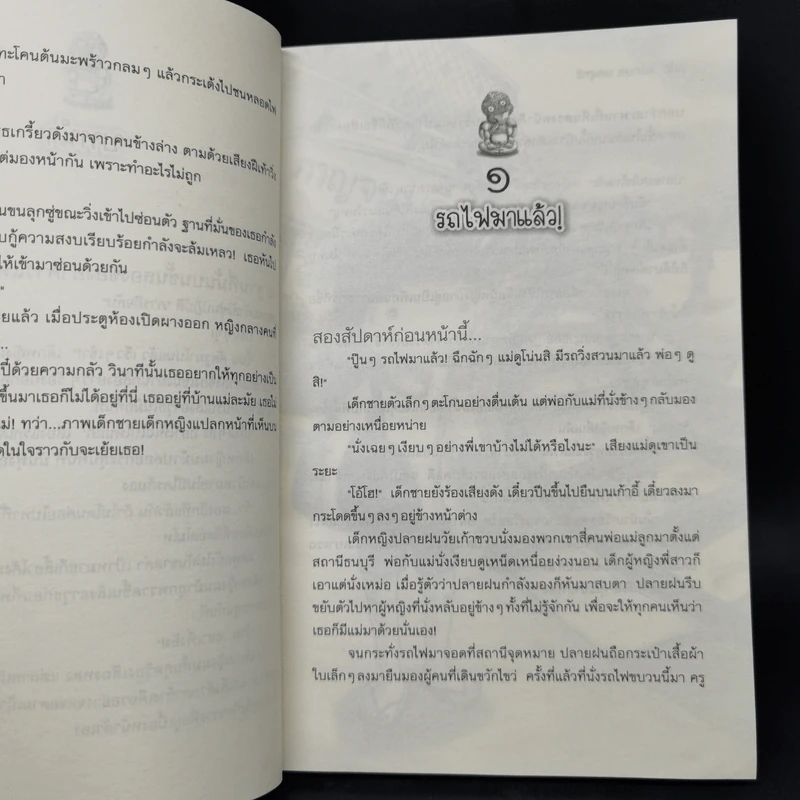 ทะโคนต้นมะพร้าวกลมๆ แล้วกระเด้งไปชนหลอดไฟ
า
ธเกรี้ยวดังมาจากคนข้างล่าง ตามด้วยเสียงฝีเท้าวิ่ง
ต่มองหน้ากัน เพราะทำอะไรไม่ถูก
นขนลุกซู่ขณะวิ่งเข้าไปซ่อนตัว ฐานที่มั่นของเธอกำลัง
บกู้ความสงบเรียบร้อยกำลังจะล้มเหลว! เธอหันไป
ให้เข้ามาซ่อนด้วยกัน
"
ยแล้ว เมื่อประตูห้องเปิดผางออก หญิงกลางคนที่
...
ปี๋ด้วยความกลัว วินาทีนั้นเธออยากให้ทุกอย่างเป็น
ขึ้นมาเธอก็ไม่ได้อยู่ที่นี่ เธออยู่ที่บ้านแม่ละมัย เธอไม่
ม่! ทว่า...ภาพเด็กชายเด็กหญิงแปลกหน้าที่เห็นบน
ดในใจราวกับจะเย้ยเธอ!
๑
รถไฟมาแล้ว!
สองสัปดาห์ก่อนหน้านี้...
"ปู๊นๆ รถไฟมาแล้ว! ฉึกฉักๆ แม่ดูโน่นสิ มีรถวิ่งสวนมาแล้ว พ่อๆ ดู
สิ!"
เด็กชายตัวเล็กๆ ตะโกนอย่างตื่นเต้น แต่พ่อกับแม่ที่นั่งข้างๆ กลับมอง
ตามอย่างเหนื่อยหน่าย
"นั่งเฉยๆ เงียบๆ อย่างพี่เขาบ้างไม่ได้หรือไงนะ" เสียงแม่ดุเขาเป็น
ระยะ
"โอ้โฮ!" เด็กชายยังร้องเสียงดัง เดี๋ยวปีนขึ้นไปยืนบนเก้าอี้ เดี๋ยวลงมา
กระโดดขึ้นๆ ลงๆ อยู่ข้างหน้าต่าง
เด็กหญิงปลายฝนวัยเก้าขวบนั่งมองพวกเขาสี่คนพ่อแม่ลูกมาตั้งแต่
สถานีธนบุรี พ่อกับแม่นั่งเงียบดูเหน็ดเหนื่อยง่วงนอน เด็กผู้หญิงพี่สาวก็
เอาแต่นั่งเหม่อ เมื่อรู้ตัวว่าปลายฝนกำลังมองก็หันมาสบตา ปลายฝนรีบ
ขยับตัวไปหาผู้หญิงที่นั่งหลับอยู่ข้างๆ ทั้งที่ไม่รู้จักกัน เพื่อจะให้ทุกคนเห็นว่า
เธอก็มีแม่มาด้วยนั่นเอง!
จนกระทั่งรถไฟมาจอดที่สถานีจุดหมาย ปลายฝนถือกระเป๋าเสื้อผ้า
ใบเล็กๆ ลงมายืนมองผู้คนที่เดินขวักไขว่ ครั้งที่แล้วที่นั่งรถไฟขบวนนี้มา ครู